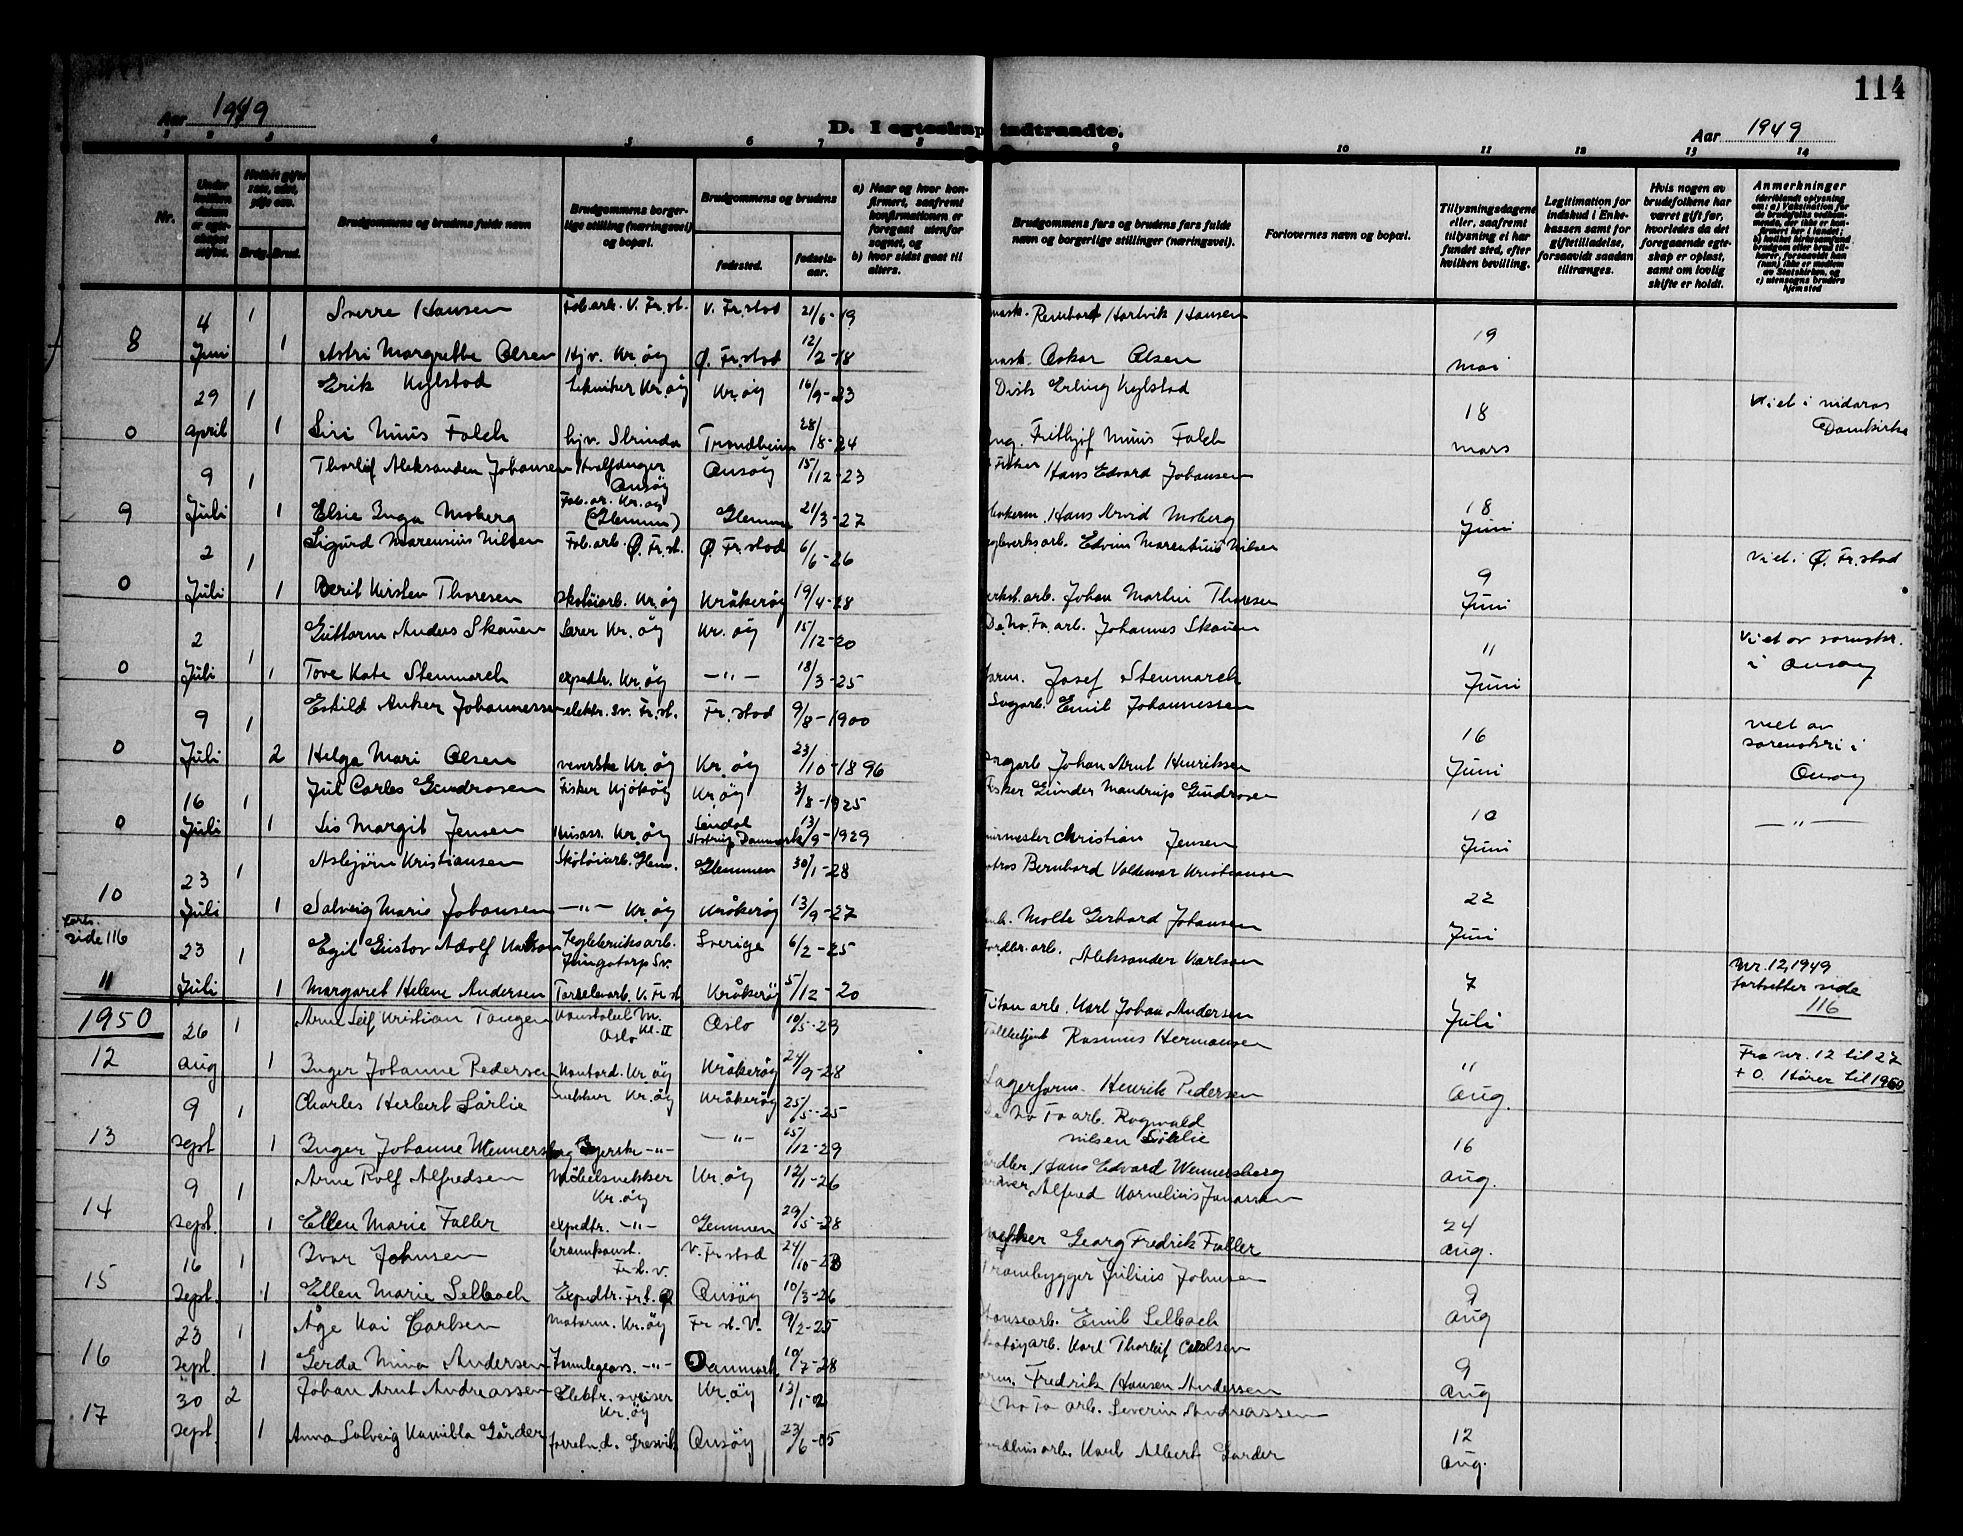 114
Aar 1949
D. I egteskap indtraadte.
Aar 1949
1 2 3 4 5 6 7 8 9 10 11 12 13 14
Nr.
Brudgommens og brudens fulde navn
Brudgommens borger-
lige stilling (næringsvei)
og bopæl.
Brudgommens og brudens
fødested.
fødsels-
aar.
a) Naar og hvor kon-
firmert, saafremt
konfirmationen er
foregaat utenfor
sognet, og
b) hvor sidst gaat til
alters.
Brudgommens fars og brudens fars fulde
navn og borgerlige stillinger (næringsvei).
Forlovernes navn og bopæl.
Tillysningsdagene
eller, saafremt
tillysning ei har
fundet sted, efter
hvilken bevilling.
Legitimation for
indskud i Enke-
kassen samt for
giftetilladelse,
forsaavidt saadan
tiltrænges.
Hvis nogen av
brudefolkene har
været gift før,
hvorledes da det
foregaaende egte-
skap er opløst,
samt om lovlig
skifte er holdt.
Anmerkninger
Brudg. Brud.
4 1 Sverre Hansen Fab.arb. V. Fr.st. V. Fr.stad 21/6-19 Hartvik Hansen
8 Juni 1 Astri Margrethe Olsen Hjv. Kr.øy Ø. Fr.stad 12/2-18 Oskar Olsen 19 mai
29 1 Erik Kylstad tekniker Kr.øy Kr.øy 16/9-23 Disk Erling Kylstad
0 april 1 Siri Muus Falch hjv. Strinda Trondheim 28/8-24 Ing. Frithjof Muus Falch 18 mars Viet i nidaros
Domkirke
9 1 Thorleif Aleksander Johansen Hvalfanger
Onsøy Onsøy 15/12-23 Fisker Hans Edvard Johansen
9 Juli 1 Elsie Inga Moberg Fab.ar. Kr.øy
(Glemmen) Glemmen 21/3-27 Hans Arvid Moberg 18 Juni
2 1 Sigurd Marensius Nilsen Fab.arb. Ø. Fr.st. Ø. Fr.stad 6/6-26 Nilsen
0 Juli 1 Berit Kirsten Thoresen skotøiarb. Kr.øy Kråkerøy 19/4-28 Johan Martin Thoresen 9 Juni Viet i Ø. Fr.stad
2 1 Guttorm Anders Skauen Lærer Kr.øy Kr.øy 15/12-20 De.No.Fa.arb. Johannes Skauen
0 Juli 1 Tove Kate Stenmarch expedtr. Kr.øy —"— 18/3-25 Josef Stenmarch 11 Juni Viet av sorenskr.
i Onsøy
9 1 Eskild Anker Johannessen elektr. sv. Fr.st. Fr.stad 9/8-1900 Emil Johannessen
0 Juli 2 Helga Mari Olsen veverske Kr.øy Kr.øy 23/10-1896 Johan Arnt Henriksen 16 Juni viet av
sorenskri i
Onsøy
16 1 Jul Carlos Gundrosen Fisker Kjøkøy Kr.øy 3/8-1925 Fisker Gunder Mandrup Gundrosen
0 Juli 1 Lis Margit Jensen Husass. Kr.øy Danmark 13/9-1929 Christian Jensen 10 Juni —"—
23 1 Asbjørn Kristiansen Skotøiarb. Glem. Glemmen 30/1-28 Bernhard Valdemar Kristiansen
10 Juli 1 Solveig Marie Johansen —"— Kr.øy Kråkerøy 13/9-27 Molte Gerhard Johansen 22 Juni
Forts.
side 116
23 1 Egil Gustav Adolf Karlson Sverige 6/2-25 Aleksander Karlson
11 Juli 1 Margaret Helene Andersen V. Fr.st Kråkerøy 5/12-20 Titan arb. Karl Johan Andersen 7 Juli Nr. 12, 1949
fortsetter side
116
1950
26 1 Arne Leif Kristian Tangen
Oslo Oslo 10/5-23 Rasmus Hermansen
12 aug 1 Inger Johanne Pedersen Kontord. Kr.øy Kråkerøy 24/9-28 Lagerform. Henrik Pedersen 11 aug. Fra nr. 12 til 27
+ 0. Hører til 1950
9 1 Charles Herbert Sørlie Snekker Kr.øy Kråkerøy 25/5-25 De No Fa arb. Ragnvald
nilsen Sørlie
13 sept 1 Inger Johanne Wennersberg Syerske —"— —"— 15/12-29 Hans Edvard Wennersberg 16 aug.
9 1 Arne Rolf Alfredsen Møbelsnekker
Kr.øy Kr.øy 12/1-26 Alfred Kornelius
14 sept. 1 Ellen Marie Faller expedtr. —"— Glemmen 29/5-28 Georg Fredrik Faller 24 aug.
16 1 Ivar Johnsen
Fr.st. v. V. Fr.stad 24/10-23 Julius Johnsen
15 sept. 1 Ellen Marie Selbach Expedtr. Fr.st. Ø Onsøy 10/3-26 Emil Selbach 9 aug
23 1 Åge Kai Carlsen Kr.øy Fr st. V. 9/2-25 Karl Thorleif Carlsen
16 sept. 1 Gerda Mina Andersen —"— Danmark 10/7-28 Fredrik Hansen Andersen 9 aug
30 2 Johan Arnt Andreassen Elektr. sveiser
Kr.øy Kr.øy 13/1-02 De No Fa arb. Severin Andreassen
17 sept. 1 Anna Solveig Kamilla Gårder forretn.d. Gresvik Onsøy 23/6-05 Karl Albert Gårder 12 aug.